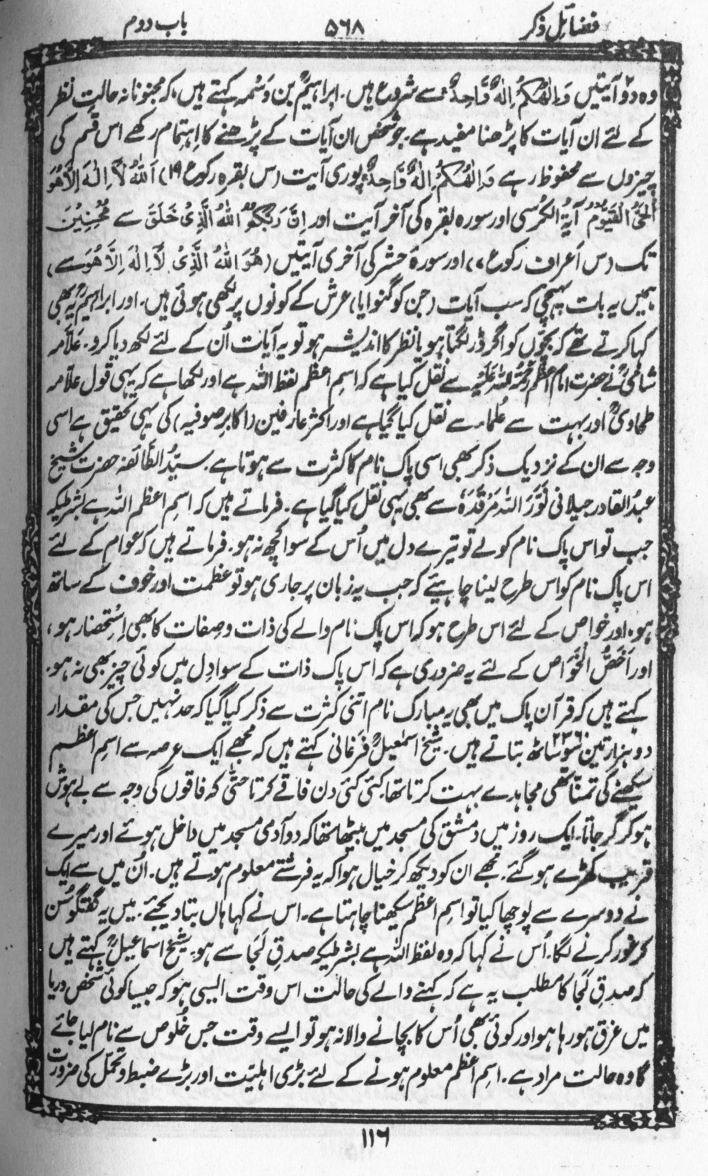 فضائل ذکر ۵۶۸ باب دوم
وہ دو آیتیں وَاِلٰهُكُمْ اِلٰهٌ وَّاحِدٌ سے شروع ہیں۔ ابراہیمؒ بن وَسْمہ کہتے ہیں، کہ مجنونانہ حالت نظر
کے لئے ان آیات کا پڑھنا مفید ہے۔ جو شخص ان آیات کے پڑھنے کا اہتمام رکھے اس قسم کی
چیزوں سے محفوظ رہے وَاِلٰهُكُمْ اِلٰهٌ وَّاحِدٌ پوری آیت (س بقرہ رکوع ۱۹) اَللّٰهُ لَآ اِلٰهَ اِلَّا هُوَ
الْحَیُّ الْقَیُّوْمُ آیۃ الکرسی اور سورہ بقرہ کی آخر آیت اور اِنَّ رَبَّكُمُ اللّٰهُ الَّذِیْ خَلَقَ سے مُحْسِنِیْنَ
تک (س اَعراف رکوع ۷)، اور سورۂ حشر کی آخری آیتیں (هُوَ اللّٰهُ الَّذِیْ لَآ اِلٰهَ اِلَّا هُوَ سے)
ہمیں یہ بات پہنچی کہ سب آیات (جن کو گنوایا) عرش کے کونوں پر لکھی ہوئی ہیں۔ اور ابراہیمؒ یہ بھی
کہا کرتے تھے کہ بچوں کو اگر ڈر لگتا ہو یا نظر کا اندیشہ ہو تو یہ آیات اُن کے لئے لکھ دیا کرو۔ علّامہ
شامیؒ نے حضرت امام اعظم رحمۃ اللہ علیہ سے نقل کیا ہے کہ اسم اعظم لفظ اللہ ہے اور لکھا ہے کہ یہی قول علّامہ
طحاویؒ اور بہت سے عُلماء سے نقل کیا گیا ہے اور اکثر عارفین (اکابر صوفیہ) کی یہی تحقیق ہے اسی
وجہ سے ان کے نزدیک ذکر بھی اسی پاک نام کا کثرت سے ہوتا ہے۔ سیّدُ الطائفہ حضرت شیخ
عبدُ القادر جیلانی نَوَّرَ اللہُ مَرْقَدَہٗ سے بھی یہی نقل کیا گیا ہے۔ فرماتے ہیں کہ اسم اعظم اللہ ہے بشرطیکہ
جب تو اس پاک نام کو لے تو تیرے دل میں اُس کے سوا کچھ نہ ہو۔ فرماتے ہیں کہ عوام کے لئے
اس پاک نام کو اس طرح لینا چاہیئے کہ جب یہ زبان پر جاری ہو تو عظمت اور خوف کے ساتھ
ہو، اور خواص کے لئے اس طرح ہو کہ اس پاک نام والے کی ذات وصفات کا بھی اِسْتِحضار ہو،
اور اَخصُّ الْخَوَاص کے لئے یہ ضروری ہے کہ اس پاک ذات کے سوا دِل میں کوئی چیز بھی نہ ہو۔
کہتے ہیں کہ قرآن پاک میں بھی یہ مبارک نام اتنی کثرت سے ذکر کیا گیا کہ حد نہیں جس کی مقدار
دو ہزار تین سو ساٹھ ۲۳۶۰ بتاتے ہیں۔ شیخ اسمٰعیل فَرغانیؒ کہتے ہیں کہ مجھے ایک عرصہ سے اسم اعظم
سیکھنے کی تمنا تھی مجاہدے بہت کرتا تھا کئی کئی دن فاقے کرتا حتّٰی کہ فاقوں کی وجہ سے بے ہوش
ہو کر گر جاتا، ایک روز میں دمشق کی مسجد میں بیٹھا تھا کہ دو آدمی مسجد میں داخل ہوئے اور میرے
قریب کھڑے ہو گئے۔ مجھے ان کو دیکھ کر خیال ہوا کہ یہ فرشتے معلوم ہوتے ہیں۔ ان میں سے ایک
نے دوسرے سے پوچھا کیا تو اسم اعظم سیکھنا چاہتا ہے۔ اس نے کہا ہاں بتا دیجئے۔ میں یہ گفتگو سُن
کر غور کرنے لگا۔ اُس نے کہا کہ وہ لفظ اللہ ہے بشرطیکہ صدقِ لَجا سے ہو۔ شیخ اسماعیلؒ کہتے ہیں
کہ صدقِ لَجا کا مطلب یہ ہے کہ کہنے والے کی حالت اس وقت ایسی ہو کہ جیسا کوئی شخص دریا
میں غرق ہو رہا ہو اور کوئی بھی اُس کا بچانے والا نہ ہو تو ایسے وقت جس خُلوص سے نام لیا جائے
گا وہ حالت مراد ہے۔ اسم اعظم معلوم ہونے کے لئے بڑی اہلیّت اور بڑے ضبط و تحمّل کی ضرورت
۱۱۶